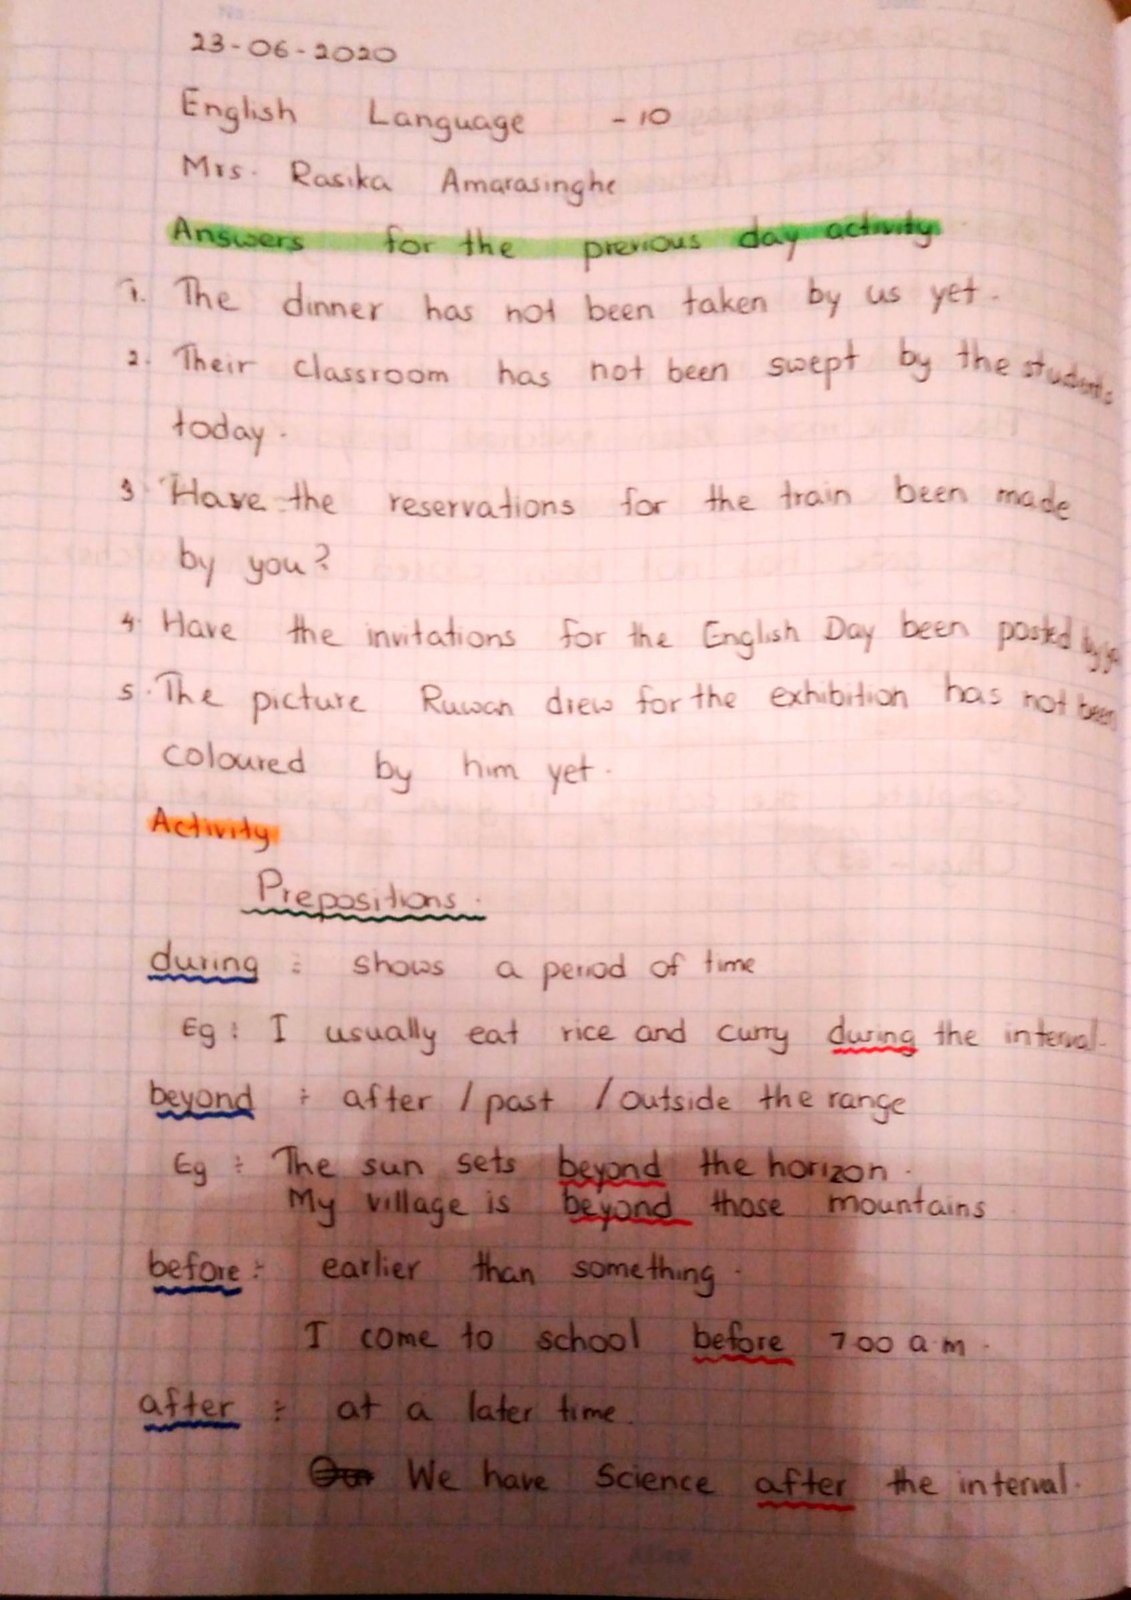 23-06-2020
English Language - 10
Mrs. Rasika Amarasinghe
Answers for the previous day activity
1. The dinner has not been taken by us yet.
2. Their classroom has not been swept by the students
today.
3. Have the reservations for the train been made
by you?
4. Have the invitations for the English Day been posted by
5. The picture Ruwan drew for the exhibition has not been
coloured by him yet.
Activity
Prepositions.
during : shows a period of time
Eg : I usually eat rice and curry during the interval.
beyond : after / past / outside the range
Eg : The sun sets beyond the horizon.
My village is beyond those mountains
before : earlier than something.
I come to school before 7 00 a.m.
after : at a later time.
We have Science after the interval.